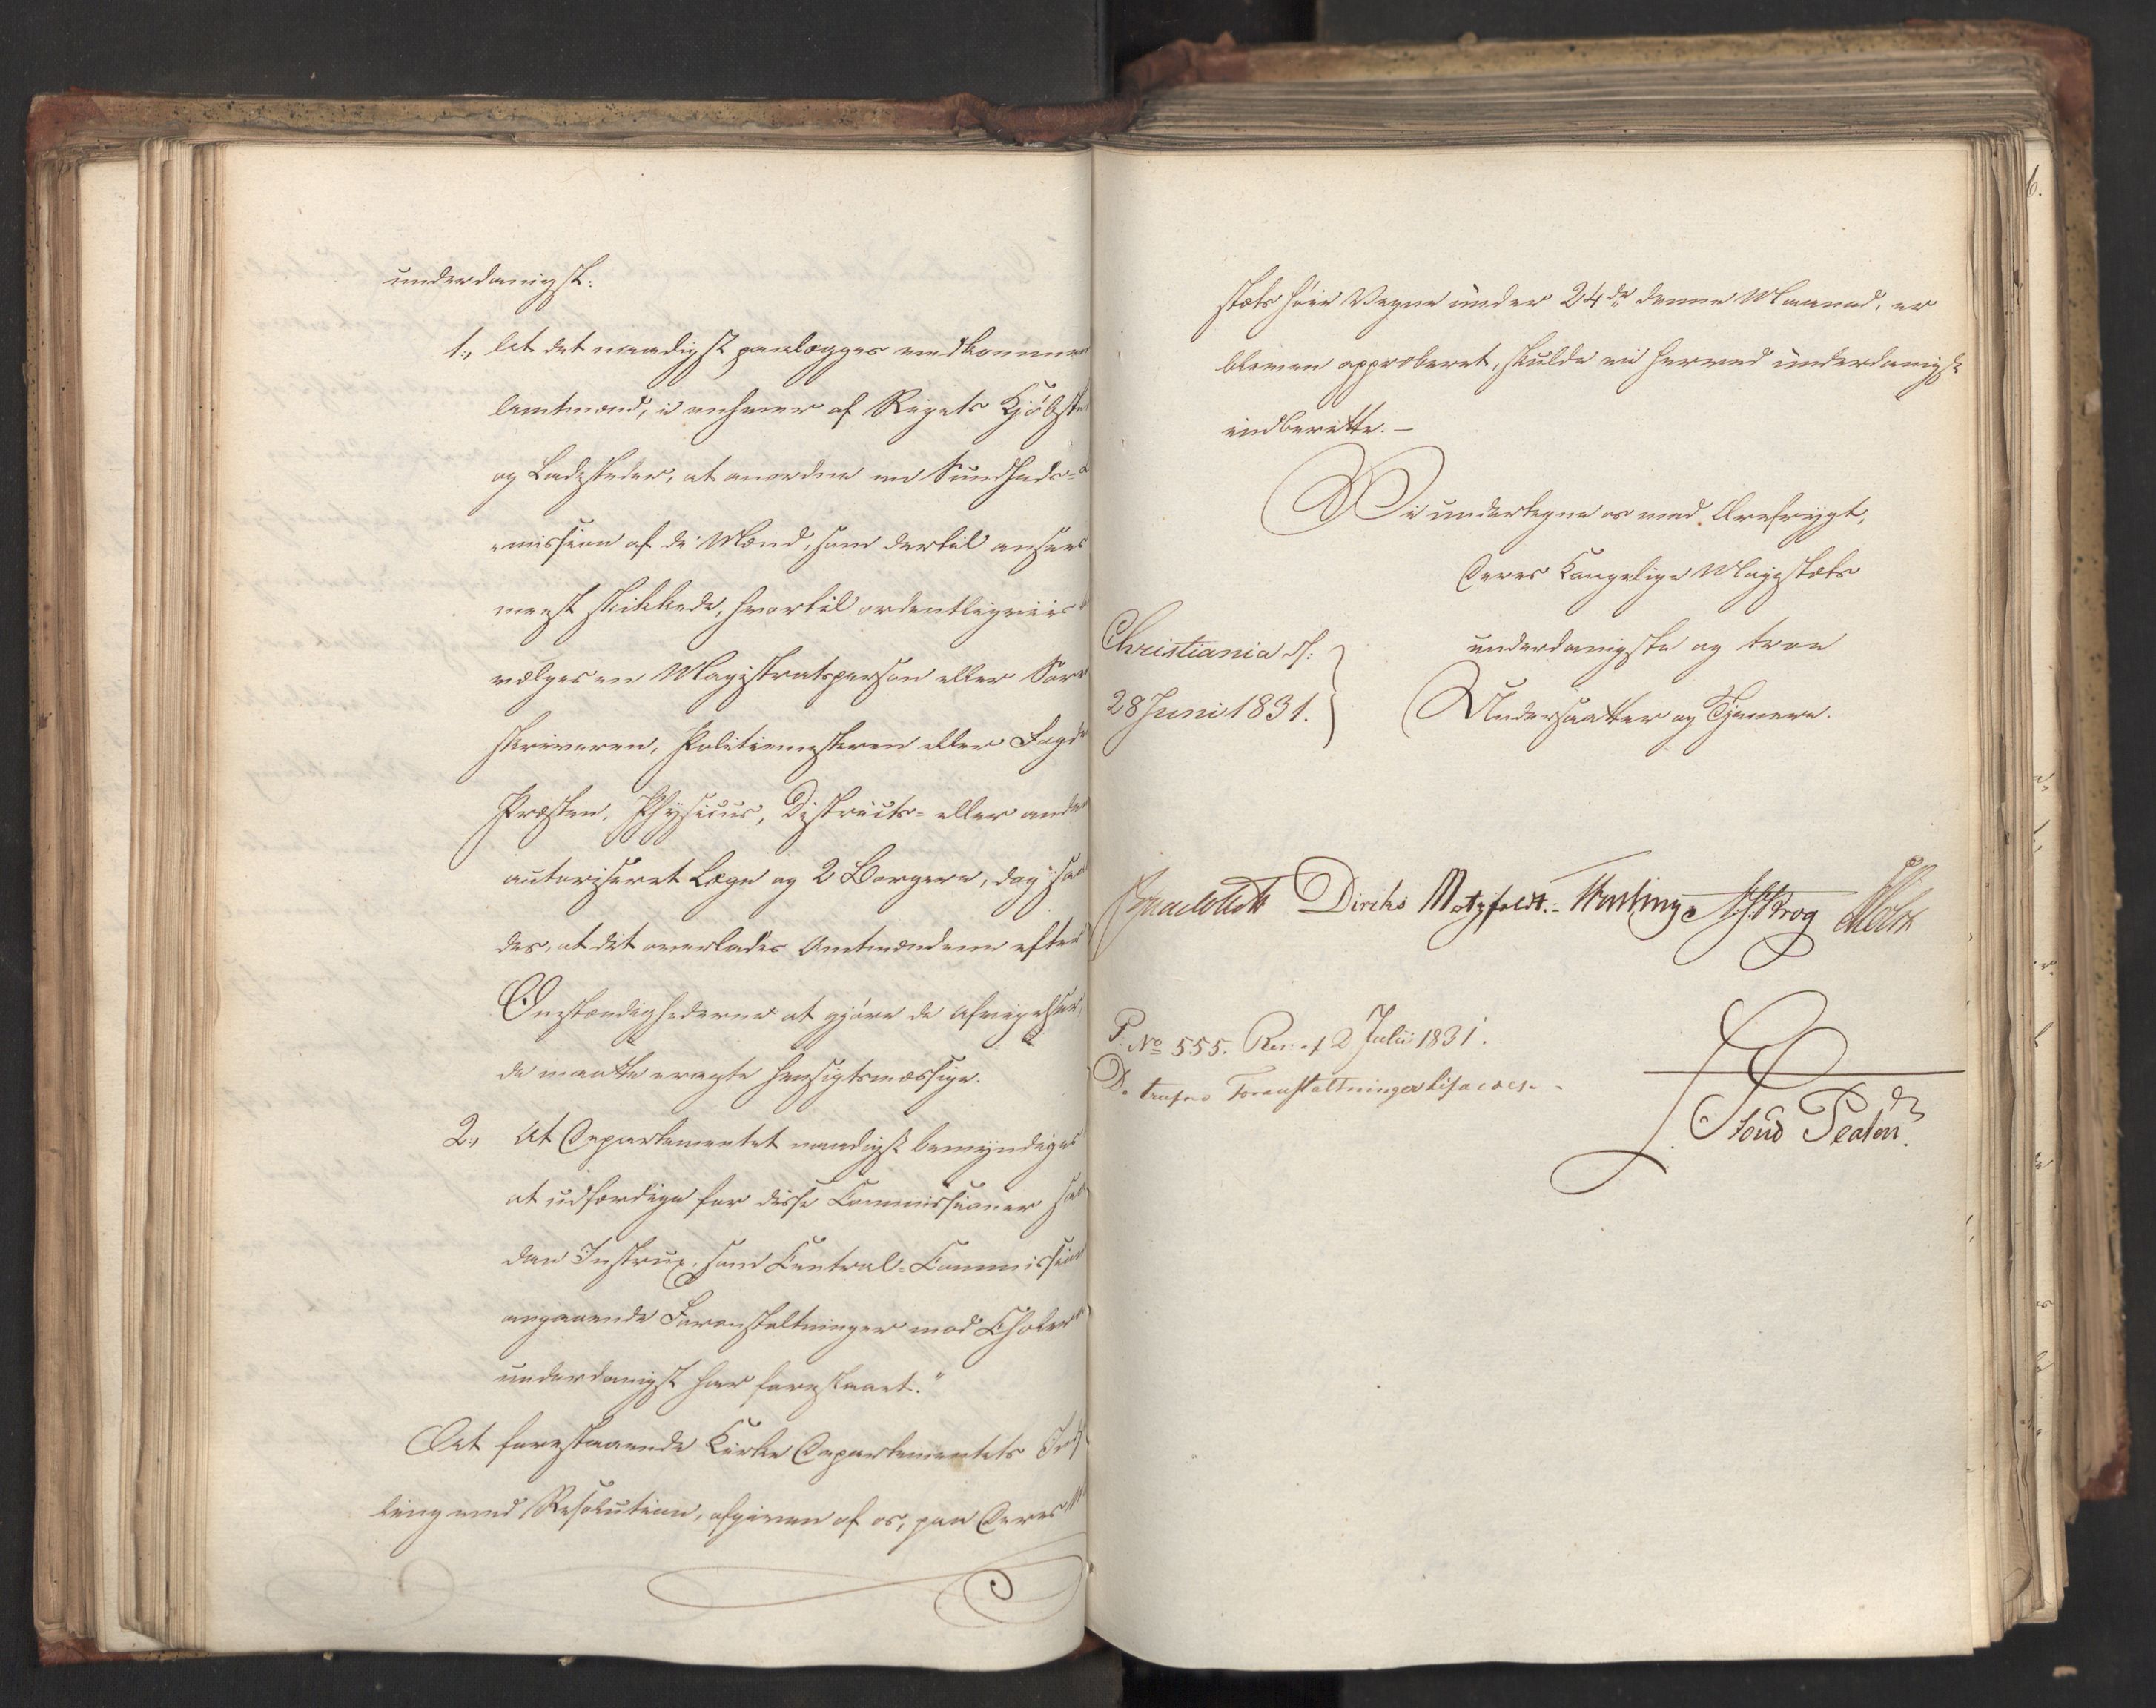 underdanigst:
1., At det naadigst paalægges vedkommen
Amtmænd, i enhver af Rigets Kjøbstæ
og Ladesteder, at anordne en Sundheds-C
mission af de Mænd, som dertil ansees
meest skikkede, hvortil ordentligviis
vælges en Magistratsperson eller Soren
skriveren, Politiemesteren eller Fogde
Præsten, Physicus, Districts- eller anden
autoriseret Læge og 2 Borgere, dog saa
des, at det overlades Amtmændene efter
Omstændighederne at gjøre de Afvigelser,
de maatte eragte hensigtsmæssige.
2., At Departementet naadigst bemyndiges
at udfærdige for disse Commissioner saa
dan Instrux, som Central-Commission
angaaende Foranstaltninger mod Cholera
underdanigst har foreslaaet."
At forestaaende Kirke Departementets Indst
ling med Resolution, afgiven af os, paa Deres M
stæts høie Vegne under 24de denne Maaned, er
bleven approberet, skulde vi herved underdanigst
indberette. —
Vi undertegne os med Ærefrygt,
Deres Kongelige Majestæts
underdanigste og troe
Undersaatter og Tjenere.
Christiania d:
28 Juni 1831.
Diriks Motzfeldt. Fasting Krog Holst
P. No 555. Res: af 2 Julii 1831.
D. trufne Foranstaltninger